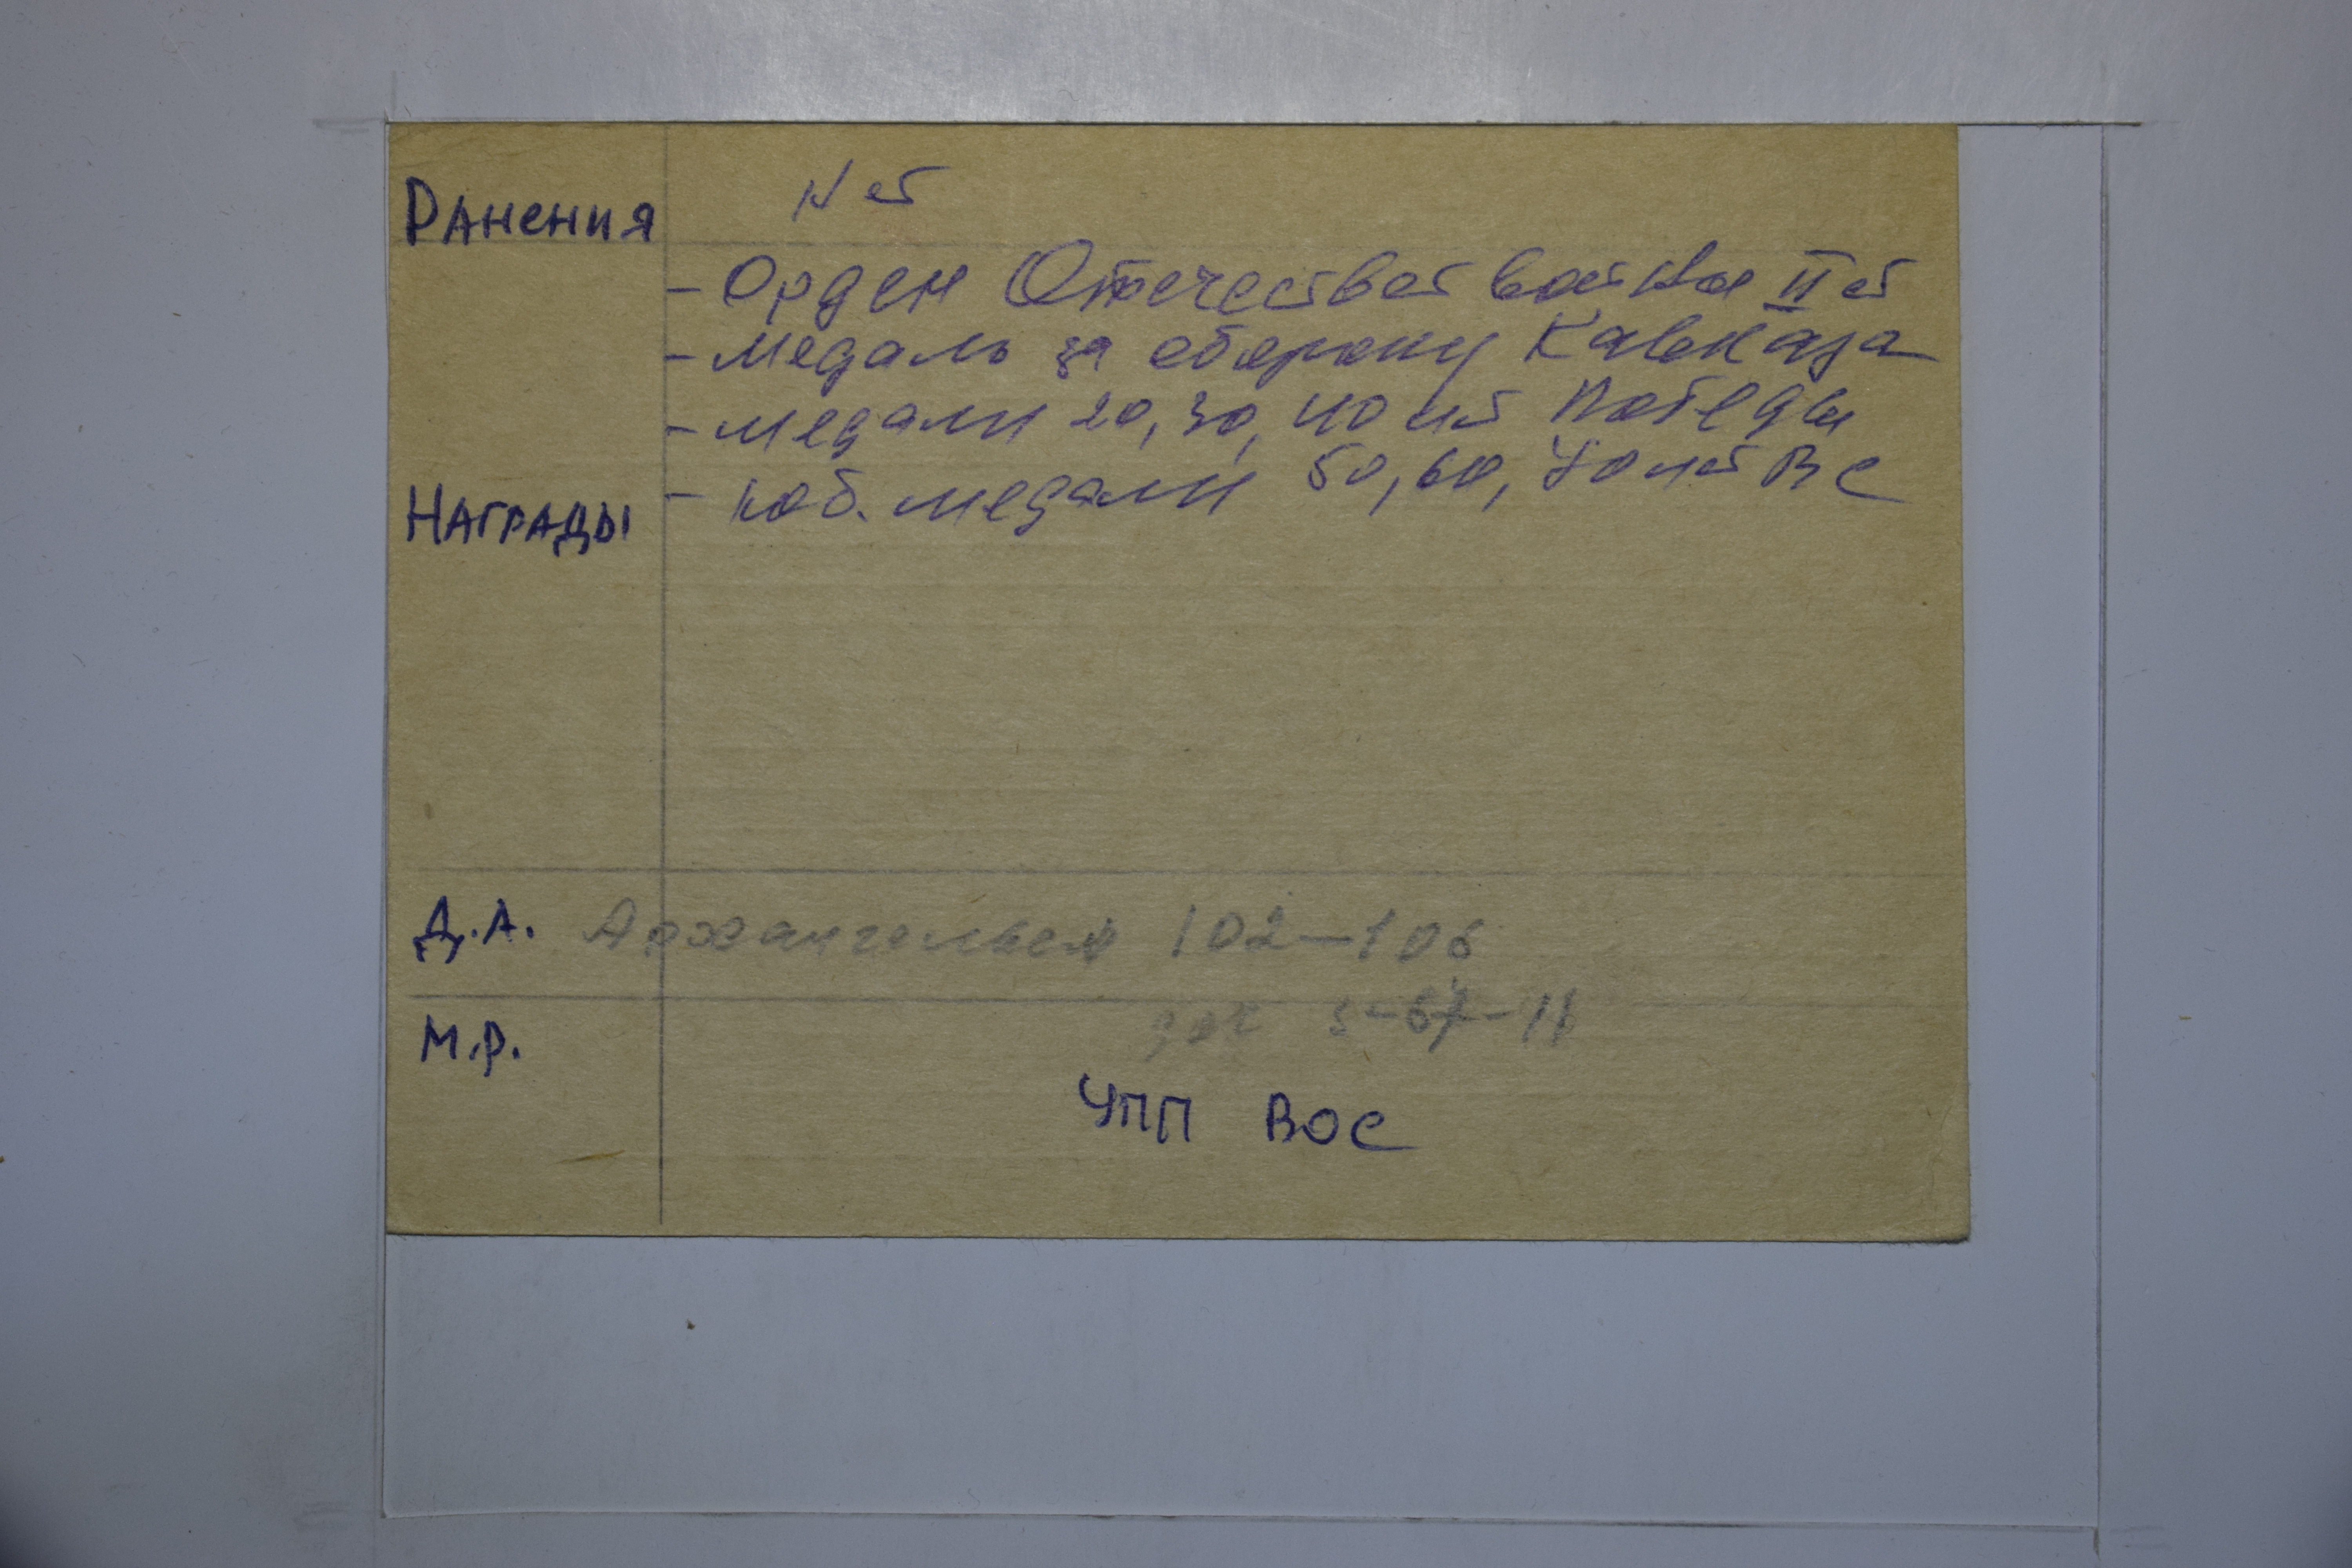 Ранения Нет
- Орден Отечествет войны II ст
- медаль за оборону Кавказа
- медали 20, 30, 40 лет Победы
Награды - юб. медали 50, 60, 70 лет ВС
Д.А. Архангельск 102-106
М.Р.
УПП ВОС